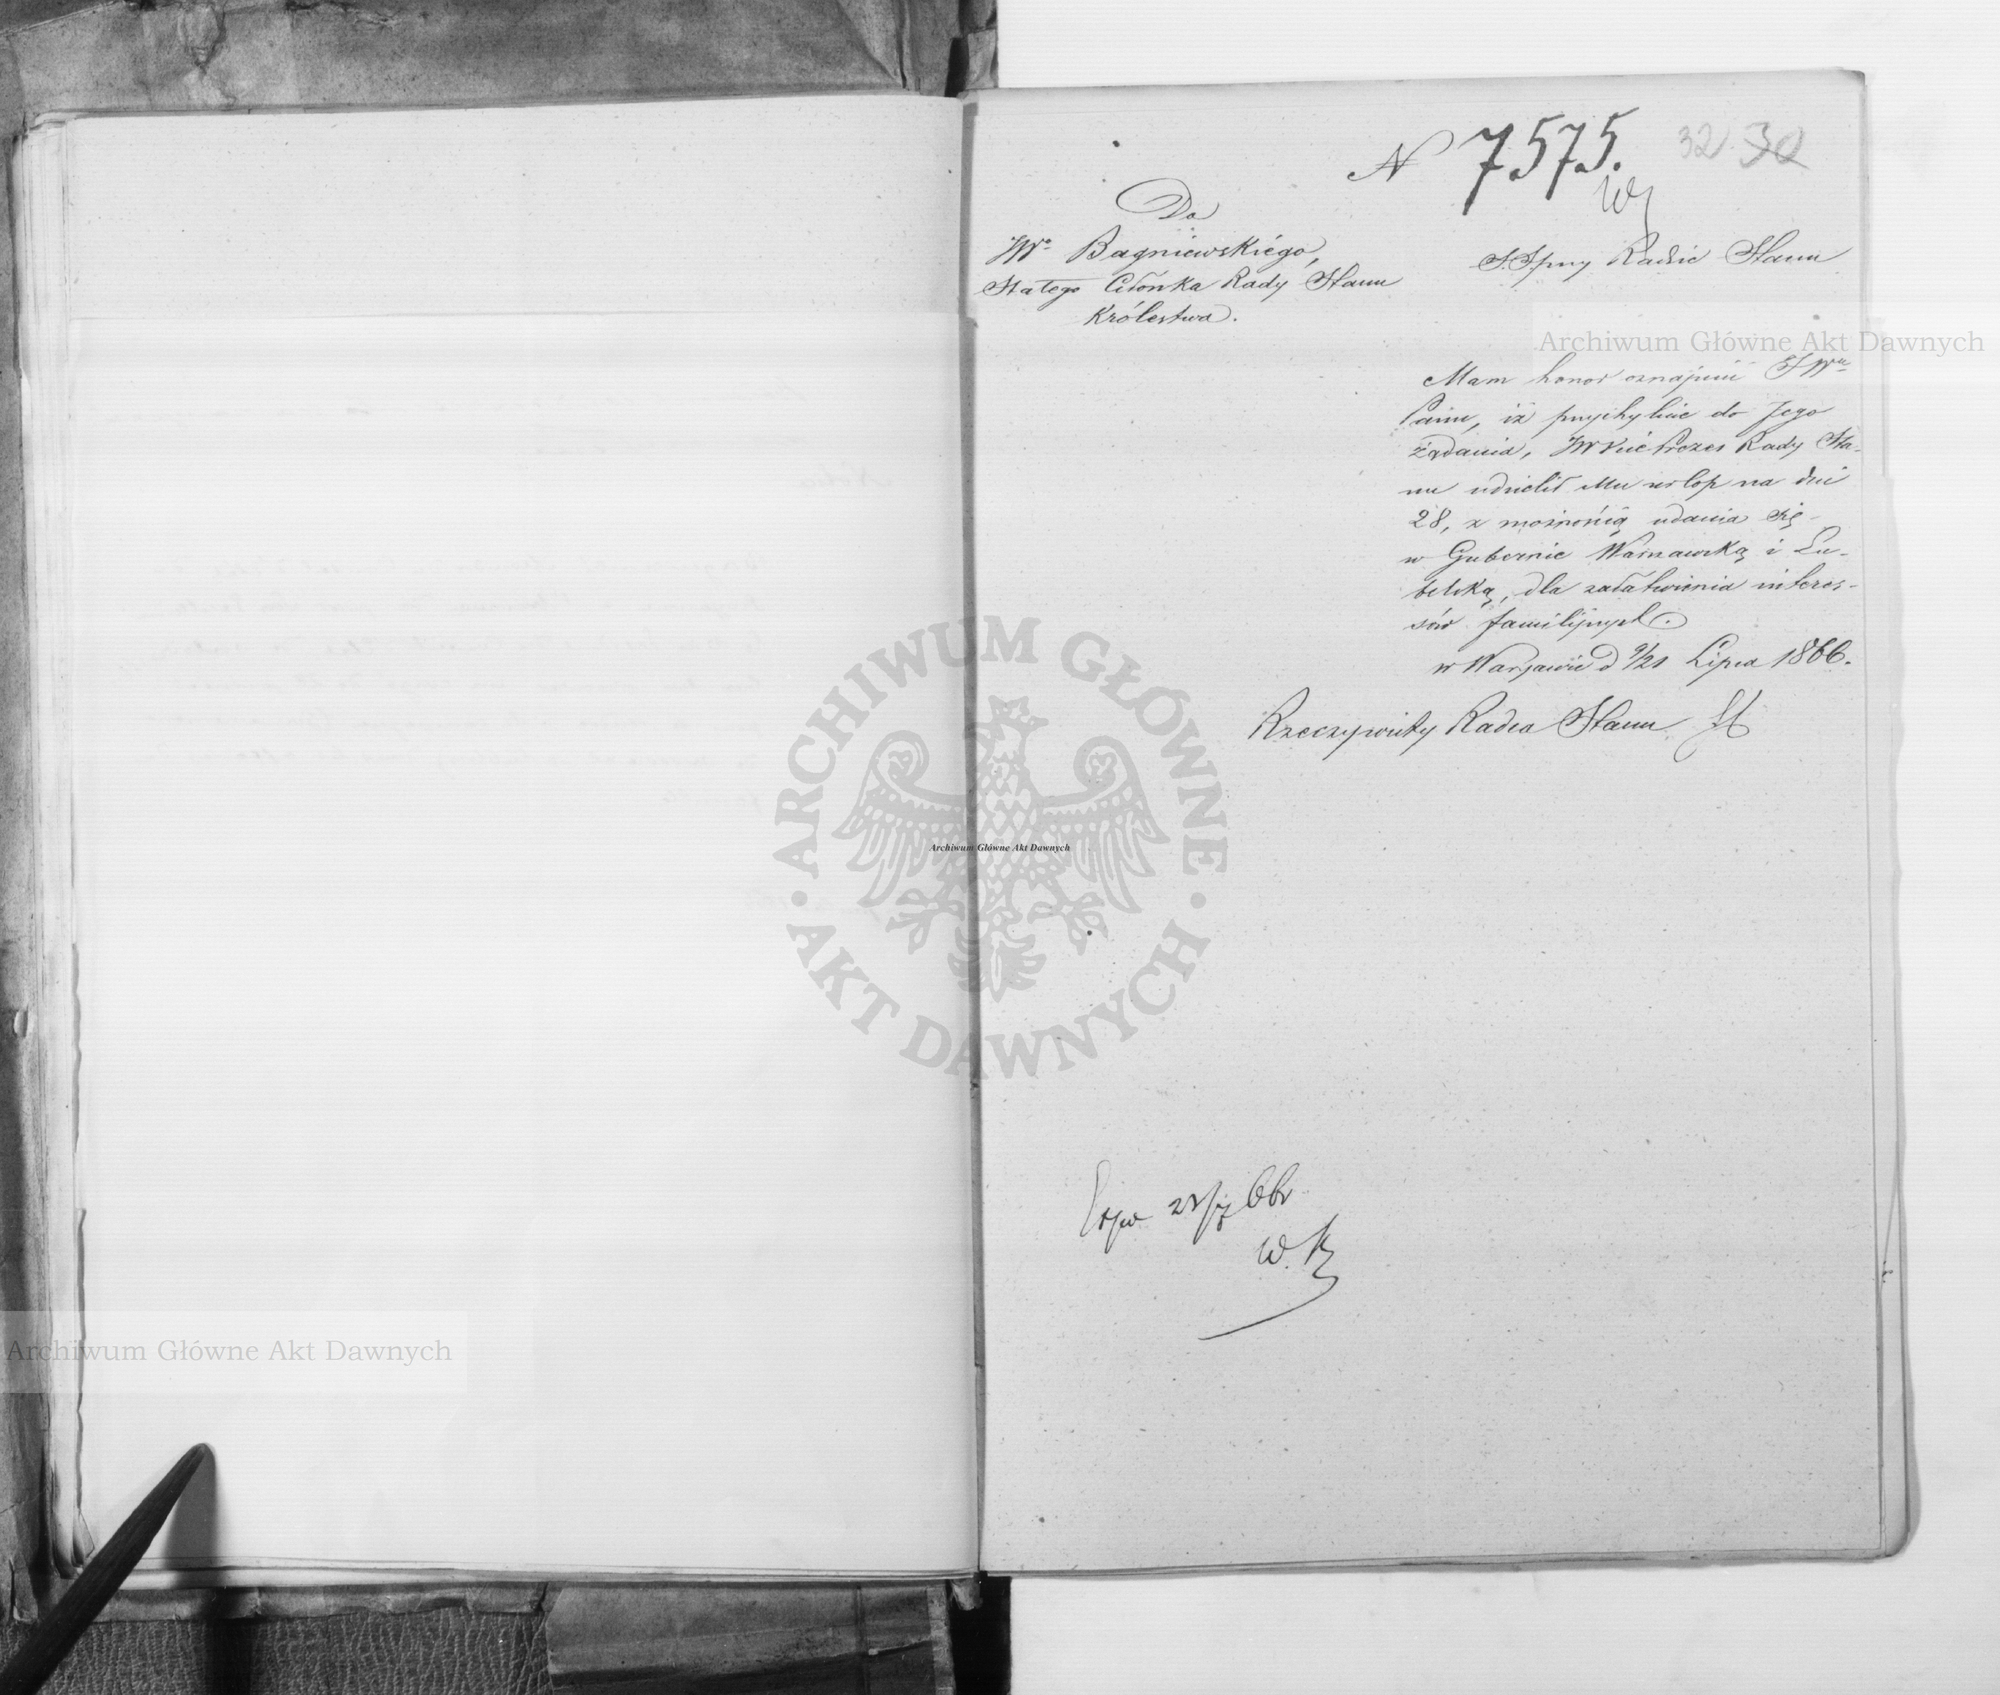 N 7575.
32 30
Do
JWo Bagniewskiégo,
Stałego Członka Rady Stanu
Królestwa.
Radzie Stanu
Mam honor oznajmić JWu
Panu, iż przychylnie do Jego
żądania, JW Vice Prezes Rady Sta-
nu udzielił Mu urlop na dni
28, z możnością udania się
w Gubernię Warszawską i Lu-
belską, dla załatwienia interes-
sów familijnych.
w Warszawie d 9/21 Lipca 1866.
Rzeczywisty Radca Stanu
21/7 66r
W. K
Archiwum Główne Akt Dawnych
Archiwum Główne Akt Dawnych
Archiwum Główne Akt Dawnych
· ARCHIWUM GŁÓWNE · AKT DAWNYCH